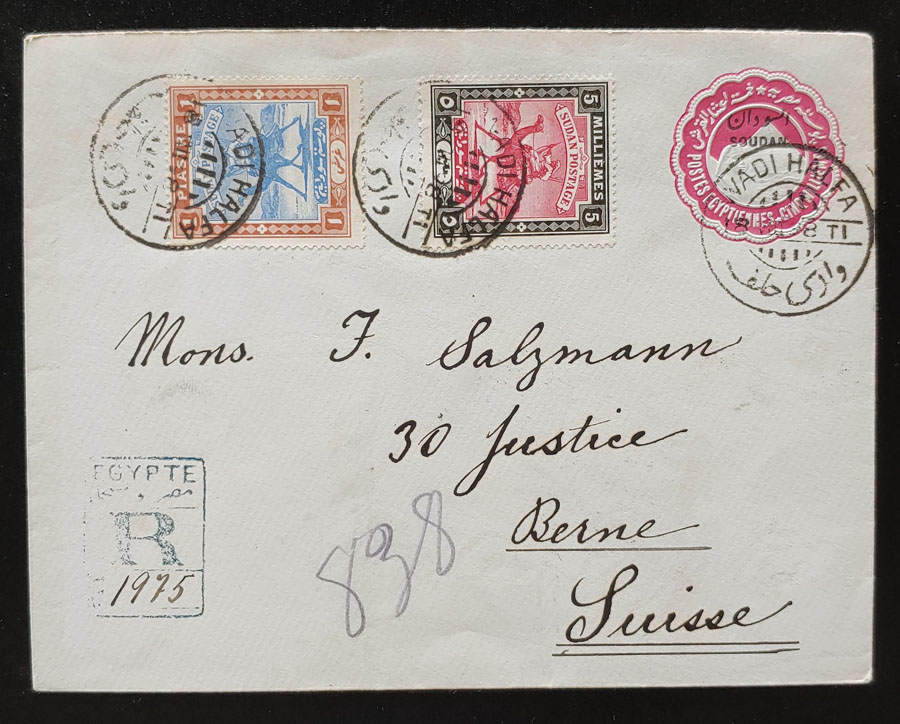 1 PIASTRE 1
POSTAGE
1 1
5 MILLIEMES 5
SUDAN POSTAGE
5
السودان
SOUDAN
POSTES EGYPTIENNES
WADI HALFA
18 98 TI
وادي حلفا
ADI HALFA
TI
ADI HALFA
8 TI
وادي
Mons. F. Salzmann
30 Justice
Berne
Suisse
EGYPTE
R
1975
838